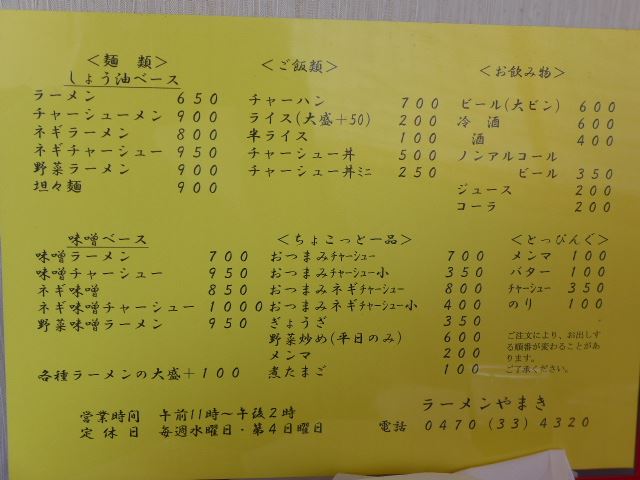 ＜麺　類＞
しょう油ベース
ラーメン　６５０
チャーシューメン　９００
ネギラーメン　８００
ネギチャーシュー　９５０
野菜ラーメン　９００
坦々麺　９００
＜ご飯類＞
チャーハン　７００
ライス(大盛＋50)　２００
半ライス　１００
チャーシュー丼　５００
チャーシュー丼ミニ　２５０
＜お飲み物＞
ビール(大ビン)　６００
冷　酒　６００
酒　４００
ノンアルコール
ビール　３５０
ジュース　２００
コーラ　２００
味噌ベース
味噌ラーメン　７００
味噌チャーシュー　９５０
ネギ味噌　８５０
ネギ味噌チャーシュー　１０００
野菜味噌ラーメン　９５０
各種ラーメンの大盛＋１００
＜ちょこっと一品＞
おつまみチャーシュー　７００
おつまみチャーシュー小　３５０
おつまみネギチャーシュー　８００
おつまみネギチャーシュー小　４００
ぎょうざ　３５０
野菜炒め(平日のみ)　６００
メンマ　２００
煮たまご　１００
＜とっぴんぐ＞
メンマ　１００
バター　１００
チャーシュー　３５０
のり　１００
ご注文により、お出しす
る順番が変わることがあ
ります。
ご了承ください。
営業時間　午前11時～午後２時
定　休　日　毎週水曜日・第４日曜日
ラーメンやまき
電話　０４７０（33）４３２０